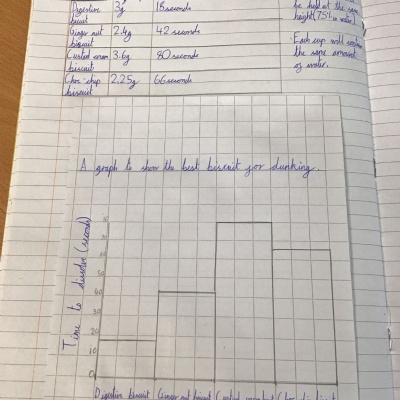 Digestive 3g 18 seconds
biscuit
Ginger nut 2.4g 42 seconds
biscuit
Custard cream 3.6g 80 seconds
biscuit
Choc-chip 2.25g 66 seconds
biscuit
be held at the same
height (75% in water)
· Each cup will
the same amount
of water.
A graph to show the best biscuit for dunking.
Time to dissolve (seconds)
60
50
40
30
20
10
0
Digestive biscuit Ginger nut biscuit Custard